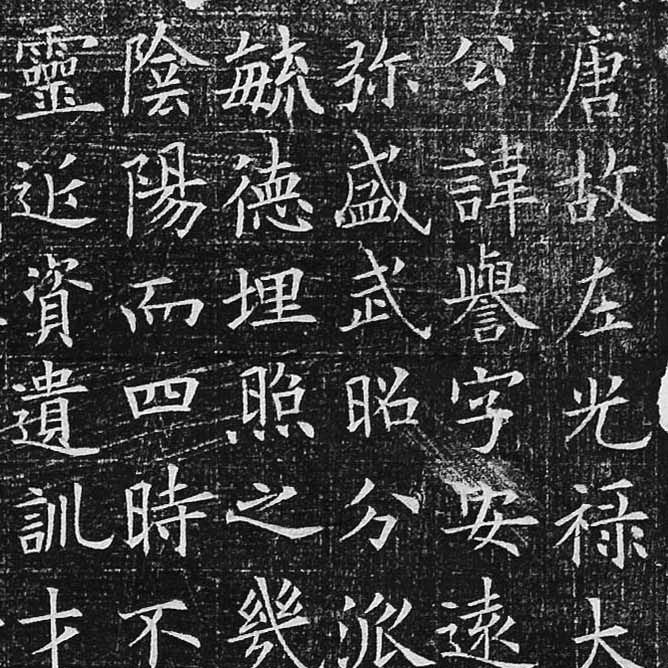 唐故左光禄大
公諱譽字安遠
弥盛武昭分派
毓德埋照之幾
陰陽而四時不
靈近資遺訓才